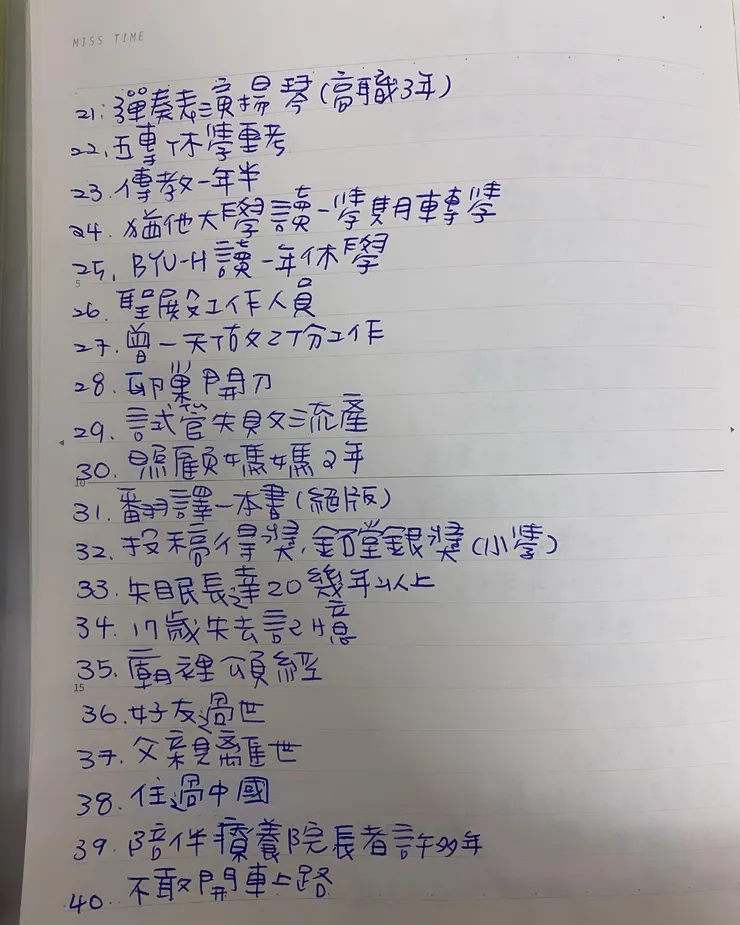 MISS TIME
21. 彈奏表演揚琴(高職3年)
22. 五專休學重考
23. 傳教一年半
24. 猶他大學讀一學期轉學
25. BYU-H讀一年休學
5
26. 聖殿工作人員
27. 曾一天做2份工作
28. 卵巢開刀
29. 試管失敗三流產
30. 照顧媽媽2年
10
31. 翻譯一本書(絕版)
32. 投稿得獎,金石堂銀獎(小學)
33. 失眠長達20幾年以上
34. 17歲失去記憶
35. 廟裡頌經
15
36. 好友過世
37. 父親離世
38. 住過中國
39. 陪伴療養院長者許多年
40. 不敢開車上路